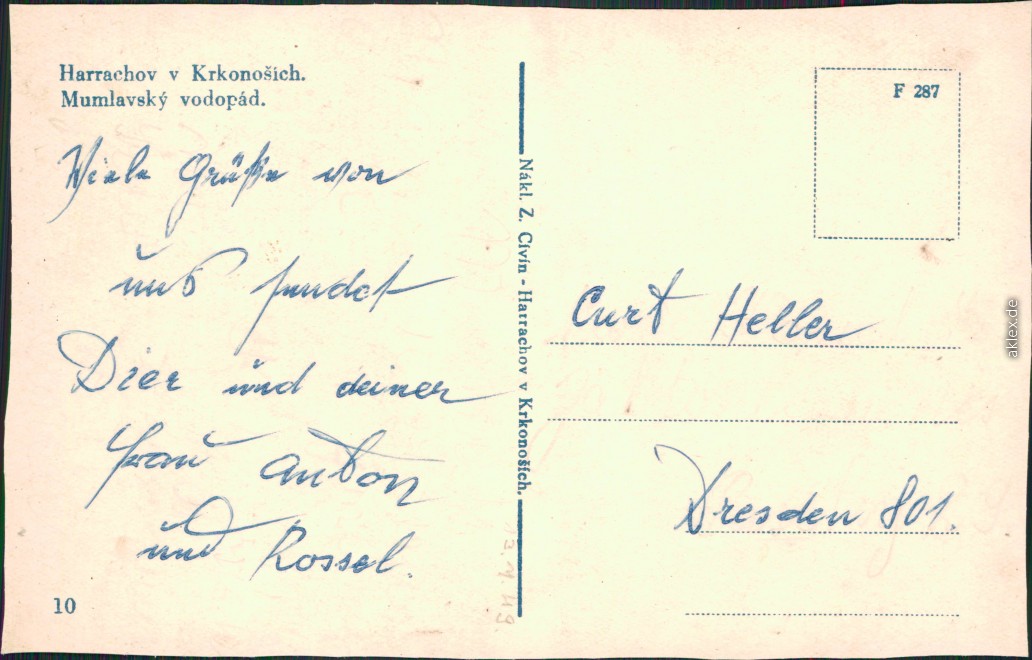 Harrachov v Krkonoších.
Mumlavský vodopád.
Viele Grüße von
uns sendet
Dier und deiner
Frau Anton
und Rossel.
10
Nákl. Z. Civín - Harrachov v Krkonoších.
F 287
Curt Heller
Dresden 801.
aklex.de